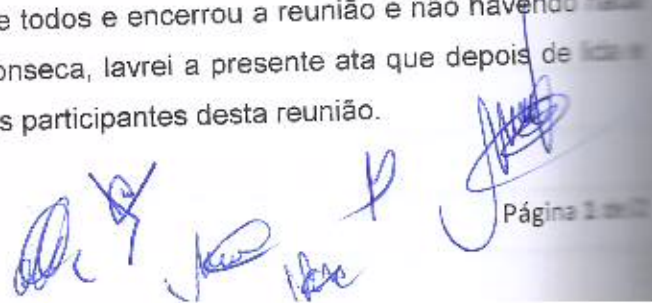 e todos e encerrou a reunião e não havendo
onseca, lavrei a presente ata que depois de lida e
s participantes desta reunião.
Página 2 de 2